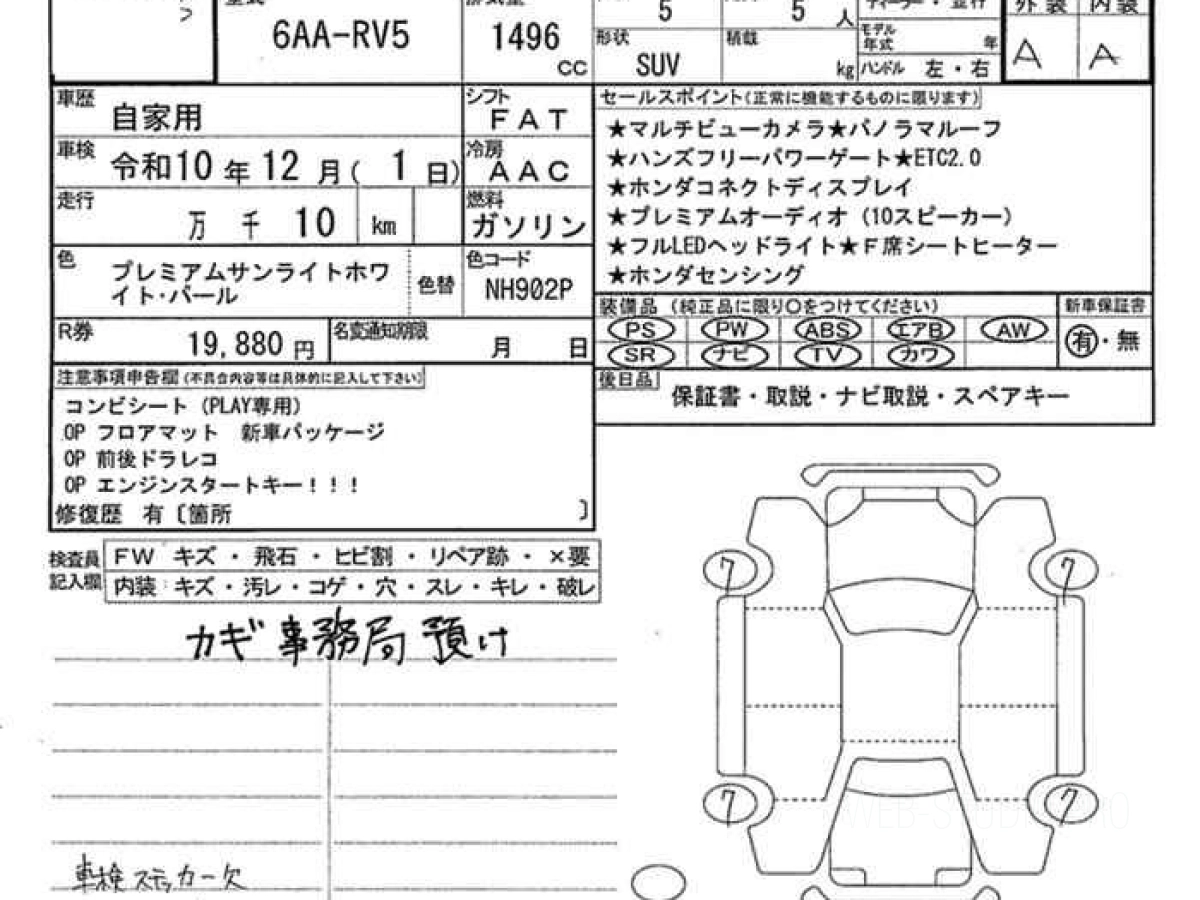 6AA-RV5
1496
cc
5
5
人
形状
SUV
積載
kg
モデル
年式
年
ハンドル 左・右
外装 内装
A A
車歴
自家用
シフト
FAT
車検
令和10年12月(1日)
冷房
AAC
走行
万 千 10 km
燃料
ガソリン
色
プレミアムサンライトホワ
イト・パール
色替
色コード
NH902P
R券
19,880 円
名変通知期限
月 日
セールスポイント(正常に機能するものに限ります)
★マルチビューカメラ★パノラマルーフ
★ハンズフリーパワーゲート★ETC2.0
★ホンダコネクトディスプレイ
★プレミアムオーディオ (10スピーカー)
★フルLEDヘッドライト★F席シートヒーター
★ホンダセンシング
装備品 (純正品に限り〇をつけてください)
新車保証書
PS PW ABS エアB AW
SR ナビ TV カワ
有・無
後日品
保証書・取説・ナビ取説・スペアキー
注意事項申告欄(不具合内容等は具体的に記入して下さい)
コンビシート (PLAY専用)
OP フロアマット 新車パッケージ
OP 前後ドラレコ
OP エンジンスタートキー!!!
修復歴 有〔箇所 〕
検査員
記入欄
FW キズ・飛石・ヒビ割・リペア跡・×要
内装:キズ・汚レ・コゲ・穴・スレ・キレ・破レ
カギ事務局預け
7 7
7 7
車検ステッカー欠